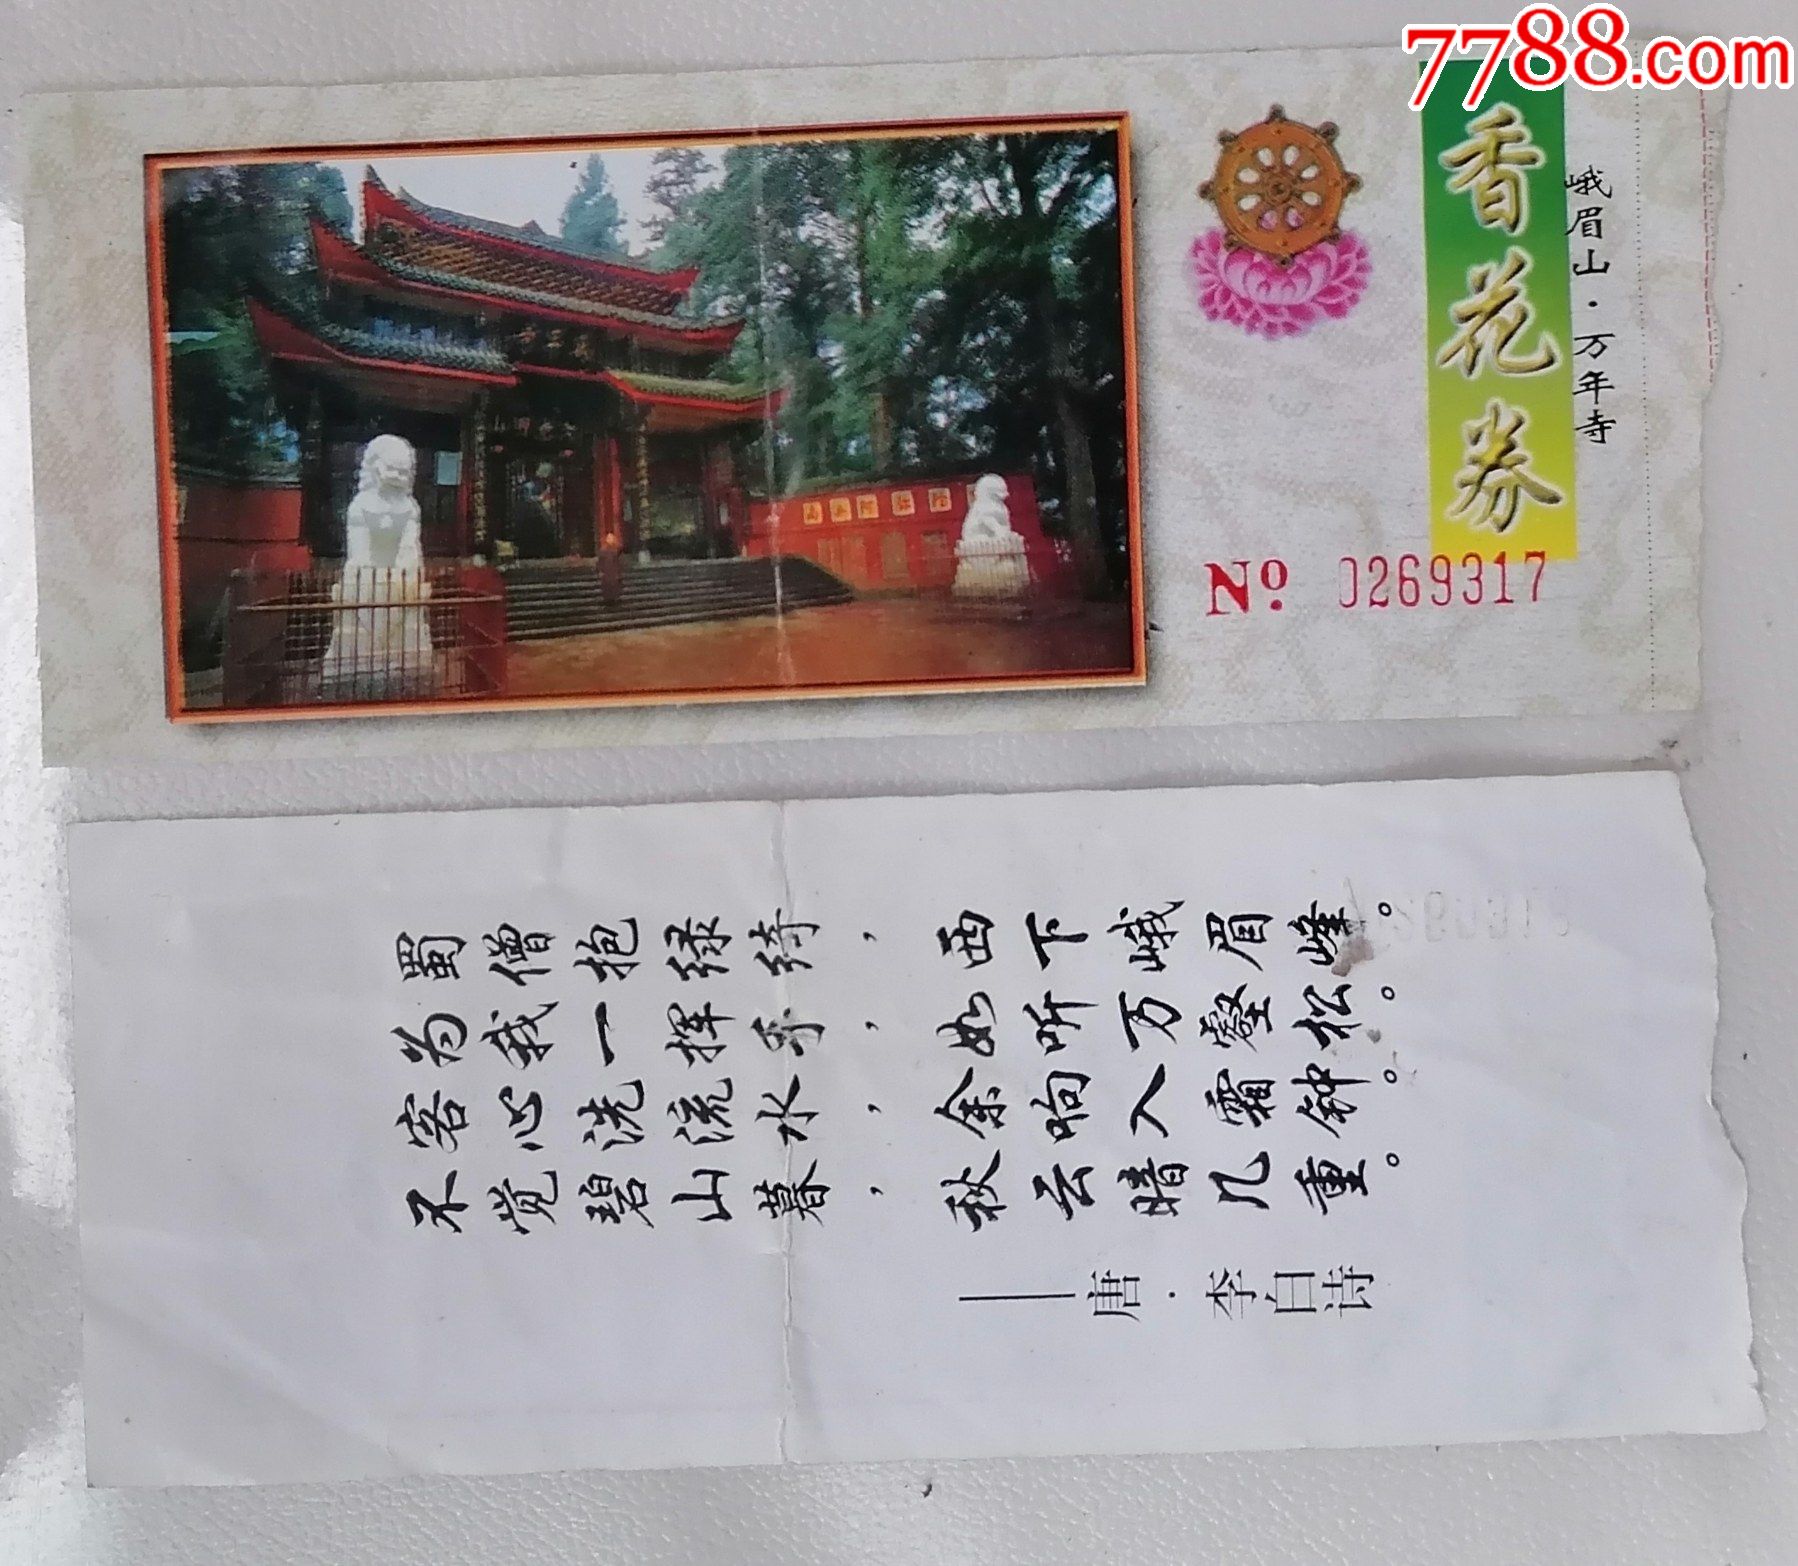 7788.com
香花券
峨眉山·万年寺
No 0269317
蜀僧抱绿绮，西下峨眉峰。
为我一挥手，如听万壑松。
客心洗流水，余响入霜钟。
不觉碧山暮，秋云暗几重。
——唐·李白诗